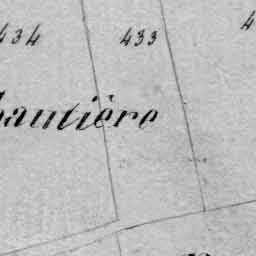 434 433 4
hautière